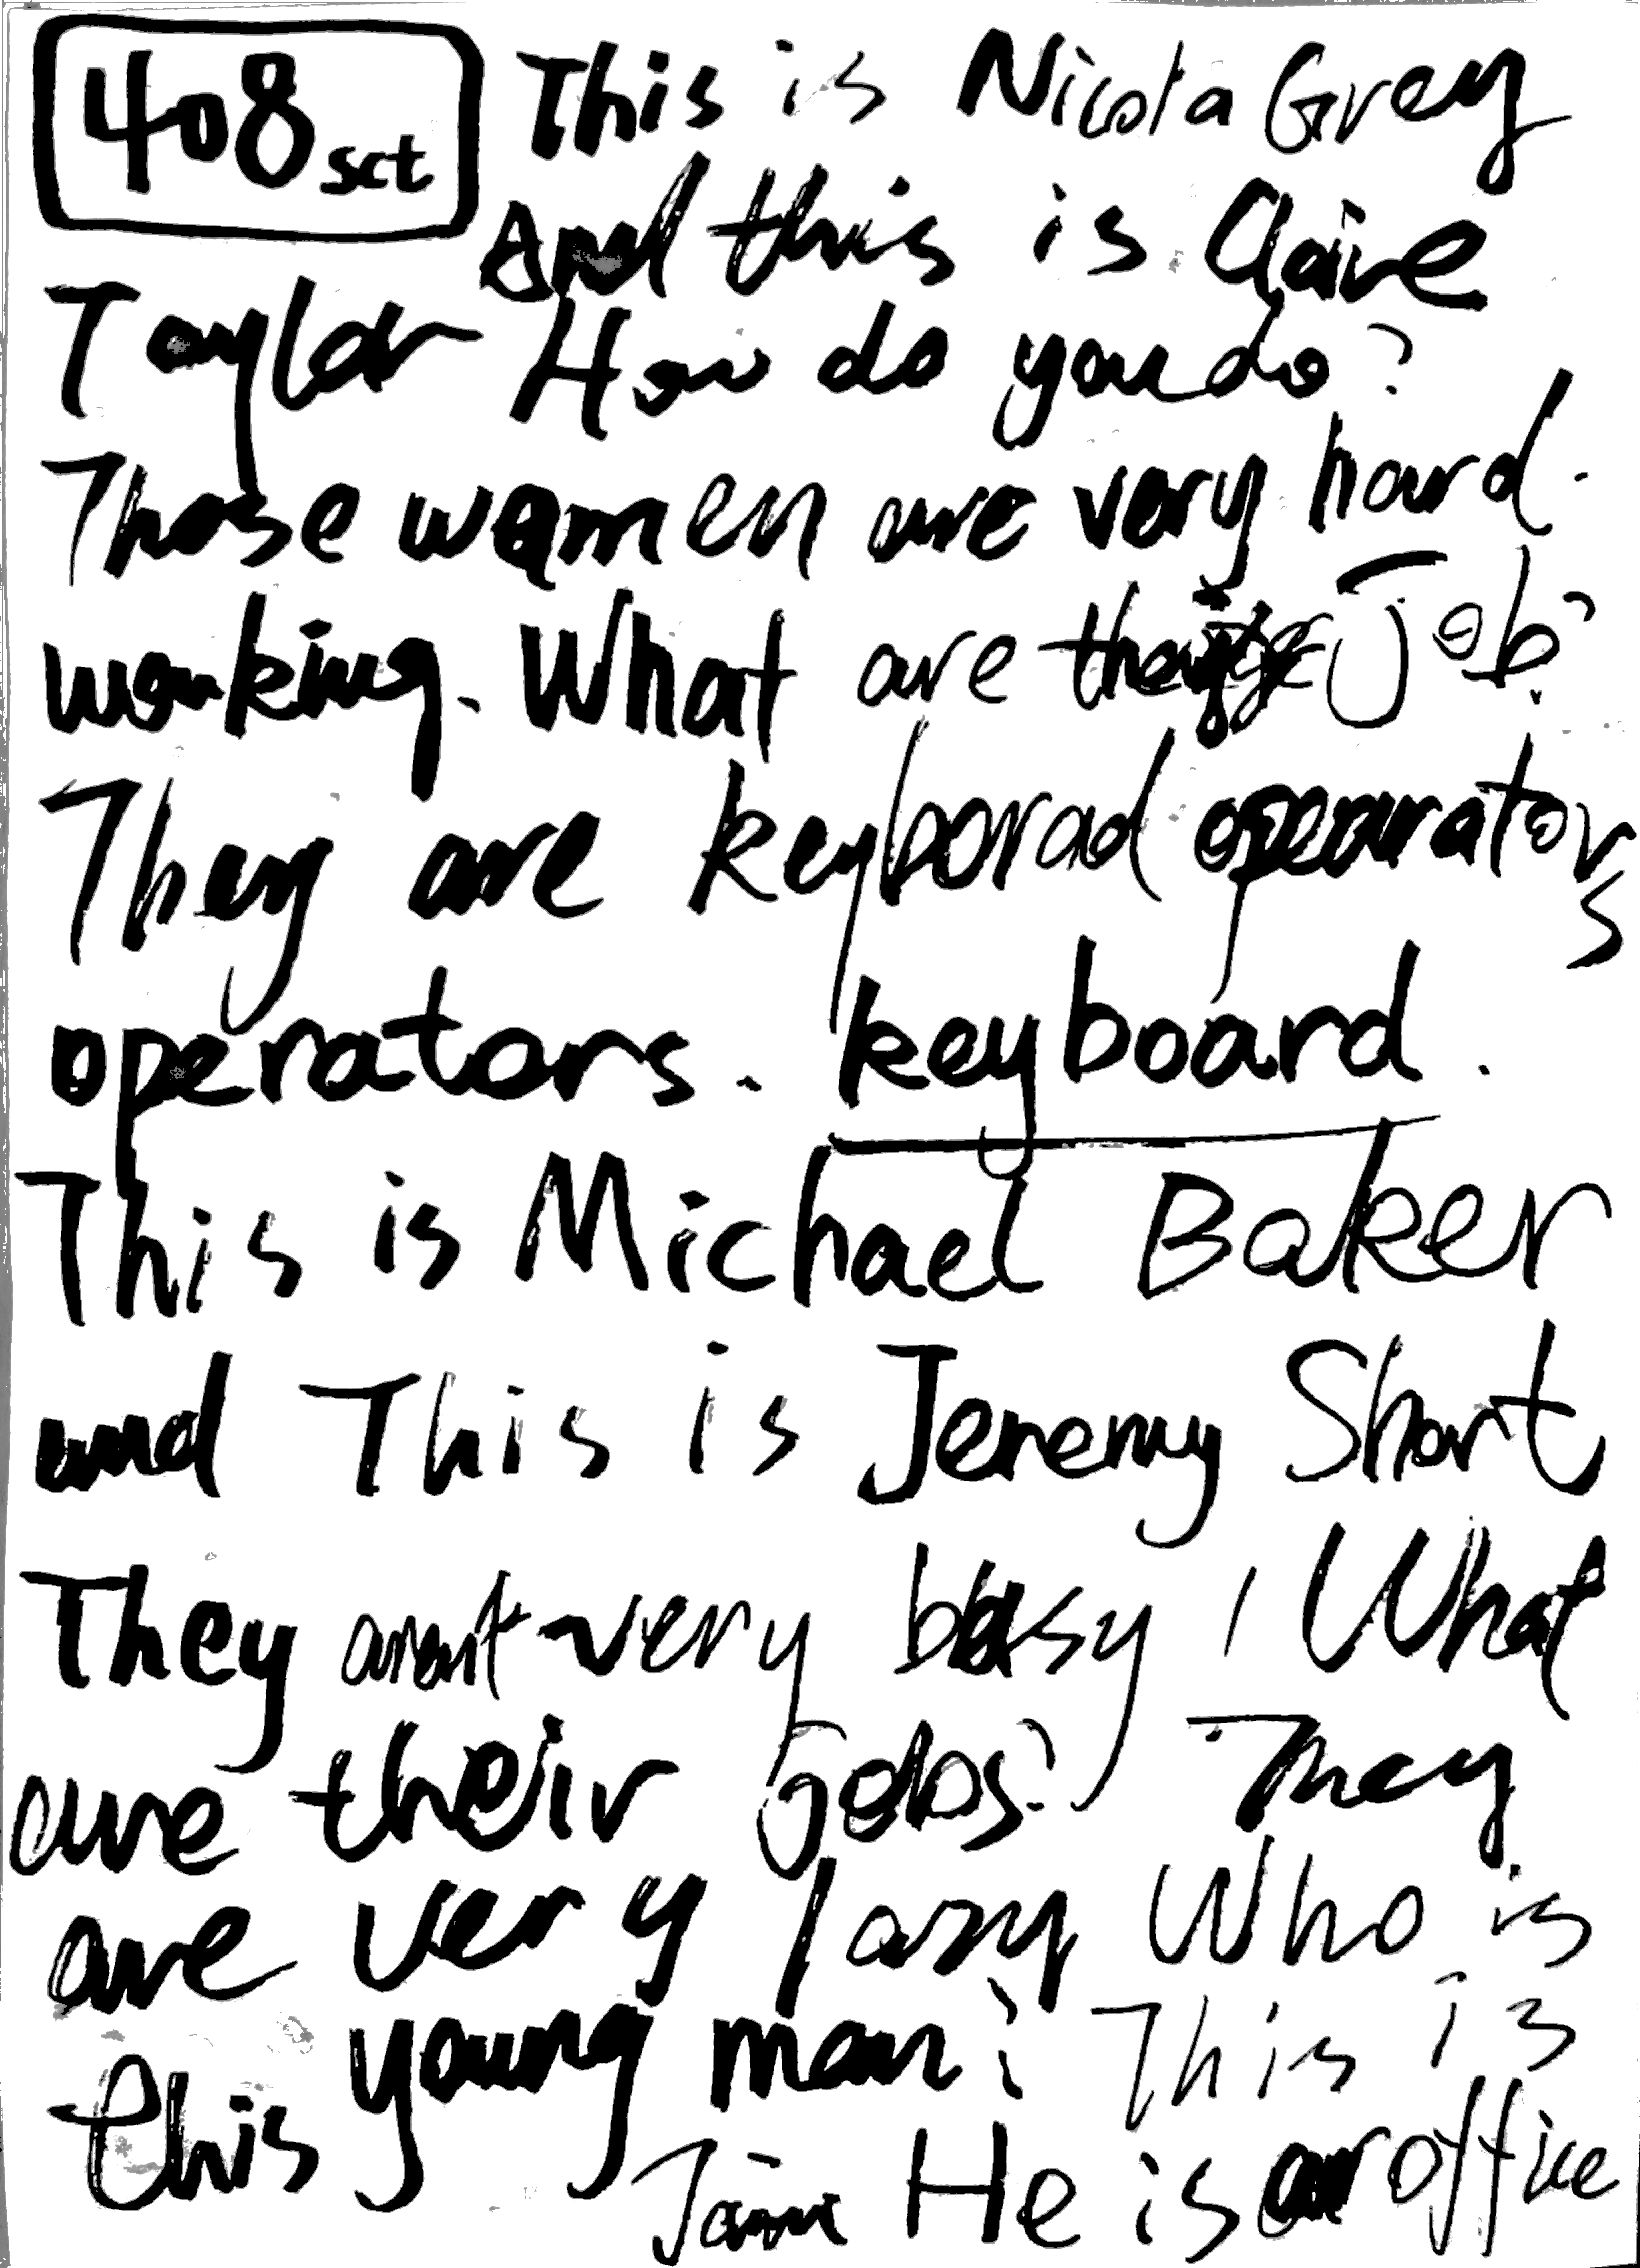 408 sct This is Nicola Grey
And this is Claire
Taylor How do you do?
Those women are very hard.
working. What are their Job?
They are keyborad operators
operators. keyboard.
This is Michael Baker
and This is Jeremy Short
They aren't very busy, What
are their jobs? They
are very lazy Who is
this young man? This is
Jim He is an office